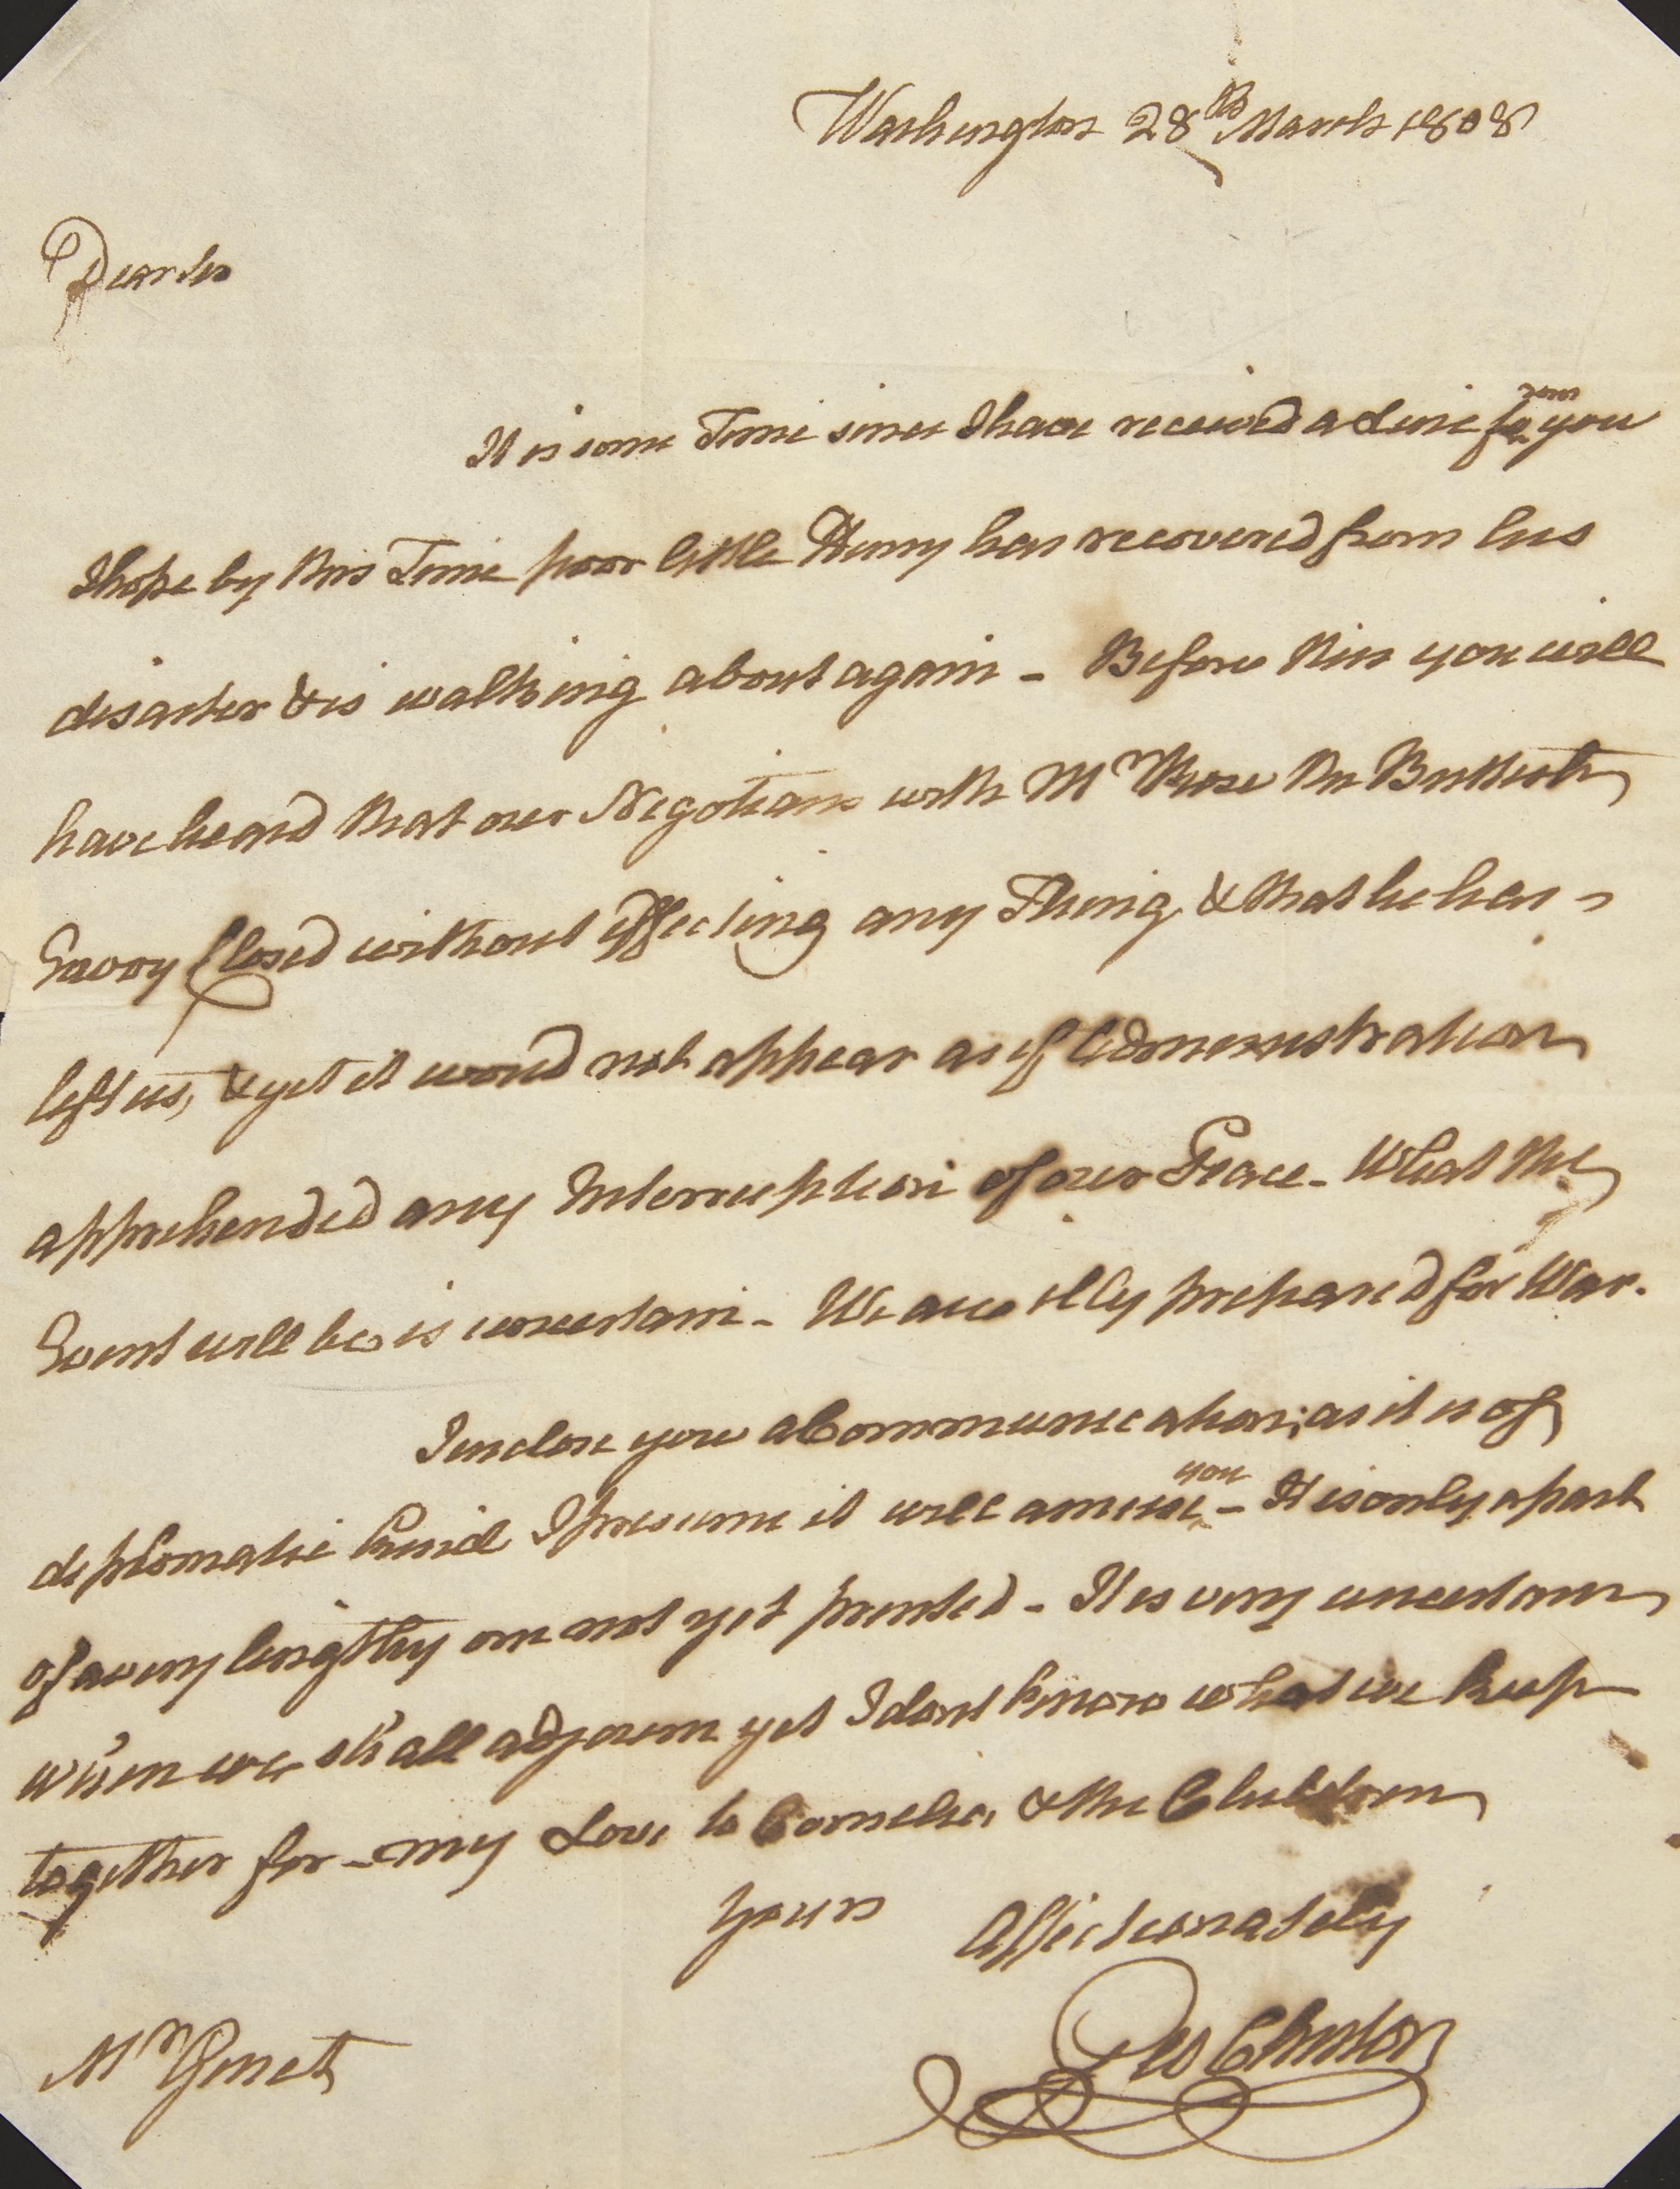 Washington 28th March 1808
Dear Sir
It is some Time since I have received a Line from you
I hope by this Time poor little Henry has recovered from his
disaster & is walking about again - Before this you will
have heard that our Negotians with Mr Rose the British
Envoy Closed without effecting any Thing & that he has -
left us, & yet it woud not appear as if Administration
apprehended any Interruption of our Peace - What the
Event will be is uncertain - We are illy prepared for War.
I enclose you a Communication; as it is of
diplomatic kind I presume it will amuse you - It is only a part
of a very lengthy one not yet printed - It is very uncertain
when we shall adjourn yet I dont know what we keep
together for - my Love to Cornelia & the Children
Yours Affectionately
Geo Clinton
Mr Genet